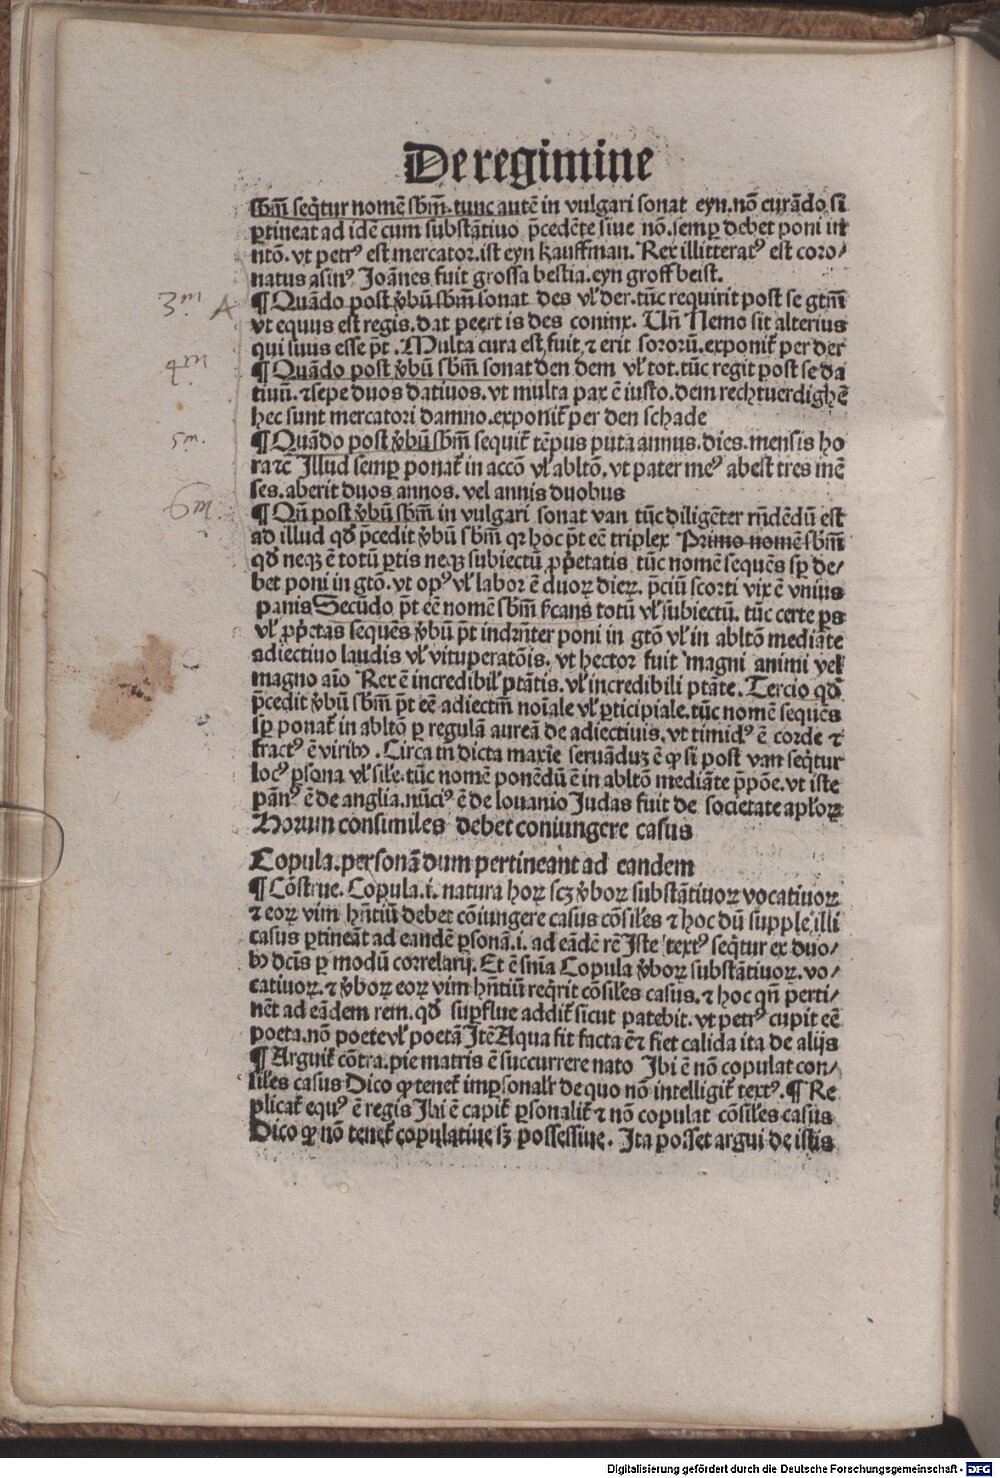 De regimine
sbm̄ seq̄tur nomē sbm̄. tunc autē in vulgari sonat eyn. nō curādo si
ꝑtineat ad idē cum substātiuo p̄cedēte siue nō. semꝑ debet poni in
ntō. vt petrꝰ est mercator. ist eyn kauffman. Rex illitteratꝰ est coro⸗
natus asinꝰ Joānes fuit grossa bestia. eyn groff beist.
3m A
¶ Quādo post v̓bū sbm̄ sonat des vl̓ der. tūc requirit post se gtm̄
vt equus est regis. dat peert is des coninx. Un̄ Nemo sit alterius
qui suus esse pt̄. Multa cura est, fuit, ⁊ erit sororū. exponit̄ per der
4m
¶ Quādo post v̓bū sbm̄ sonat den dem vl̓ tot. tūc regit post se da
tiuū. ⁊ sepe duos datiuos. vt multa pax ē iusto. dem rechtuerdighē
hec sunt mercatori damno. exponit̄ per den schade
5m.
¶ Quādo post v̓bū sbm̄ sequit̄ tēpus puta annus. dies. mensis ho
ra ⁊c̄ Illud semꝑ ponat̄ in accō vl̓ abltō. vt pater meꝰ abest tres mē
ses. aberit duos annos. vel annis duobus
6m.
¶ Qn̄ post v̓bū sbm̄ in vulgari sonat van tūc diligēter rn̄dēdū est
ad illud qd̓ p̄cedit v̓bū sbm̄ qꝛ hoc pt̄ eē triplex Primo nomē sbm̄
qd̓ neqꝫ ē totū ꝑtis neqꝫ subiectū ꝓp̓etatis tūc nomē sequēs sꝑ de⸗
bet poni in gtō. vt opꝰ vl̓ labor ē duoꝝ dieꝝ. p̄ciū scorti vix ē vnius
panis Secūdo pt̄ eē nomē sbm̄ sc̄ans totū vl̓ subiectū. tūc certe ꝑs
vl̓ ꝓp̓etas sequēs v̓bū pt̄ indrn̄ter poni in gtō vl̓ in abltō mediāte
adiectiuo laudis vl̓ vituperatōis. vt hector fuit magni animi vel
magno aīo Rex ē incredibil̓ ptātis. vl̓ incredibili ptāte. Tercio qd̓
p̄cedit v̓bū sbm̄ pt̄ eē adiectm̄ noīale vl̓ ꝑticipiale. tūc nomē sequēs
sꝑ ponat̄ in abltō ꝑ regulā aureā de adiectiuis. vt timidꝰ ē corde ⁊
fractꝰ ē viribꝰ. Circa tn̄ dicta maxīe seruāduꝫ ē ꝙ si post van seq̄tur
locꝰ ꝑsona vl̓ sil̓e. tūc nomē ponēdū ē in abltō mediāte p̄pōe. vt iste
pānꝰ ē de anglia. nūciꝰ ē de louanio Judas fuit de societate apl̓oꝝ
Horum consimiles debet coniungere casus
Copula. personā dum pertineant ad eandem
¶ Cōstrue. Copula. i. natura hoꝝ scꝫ v̓boꝝ substātiuoꝝ vocatiuoꝝ
⁊ eoꝝ vim hn̄tiū debet cōiungere casus cōsil̓es ⁊ hoc dū supple illi
casus ꝑtineāt ad eandē ꝑsonā. i. ad eādē rē Iste textꝰ seq̄tur ex duo⸗
bꝰ dc̄is ꝑ modū correlarij. Et ē sn̄ia Copula v̓boꝝ substātiuoꝝ. vo⸗
catiuoꝝ. ⁊ v̓boꝝ eoꝝ vim hn̄tiū req̄rit cōsil̓es casus. ⁊ hoc qn̄ perti⸗
nēt ad eādem rem. qd̓ suꝑflue addit̄ sicut patebit. vt petrꝰ cupit eē
poeta. nō poete vl̓ poetā Itē Aqua fit facta ē ⁊ fiet calida ita de alijs
¶ Arguit̄ cōtra. pie matris ē succurrere nato Ibi ē nō copulat con⸗
sil̓es casus Dico ꝙ tenet̄ imꝑsonal̓r de quo nō intelligit̄ textꝰ. ¶ Re
plicat̄ equꝰ ē regis Ibi ē capit̄ ꝑsonalit̄ ⁊ nō copulat cōsil̓es casus
Dico ꝙ nō tenet̄ copulatiue sꝫ possessiue. Ita posset argui de istis
Digitalisierung gefördert durch die Deutsche Forschungsgemeinschaft - DFG